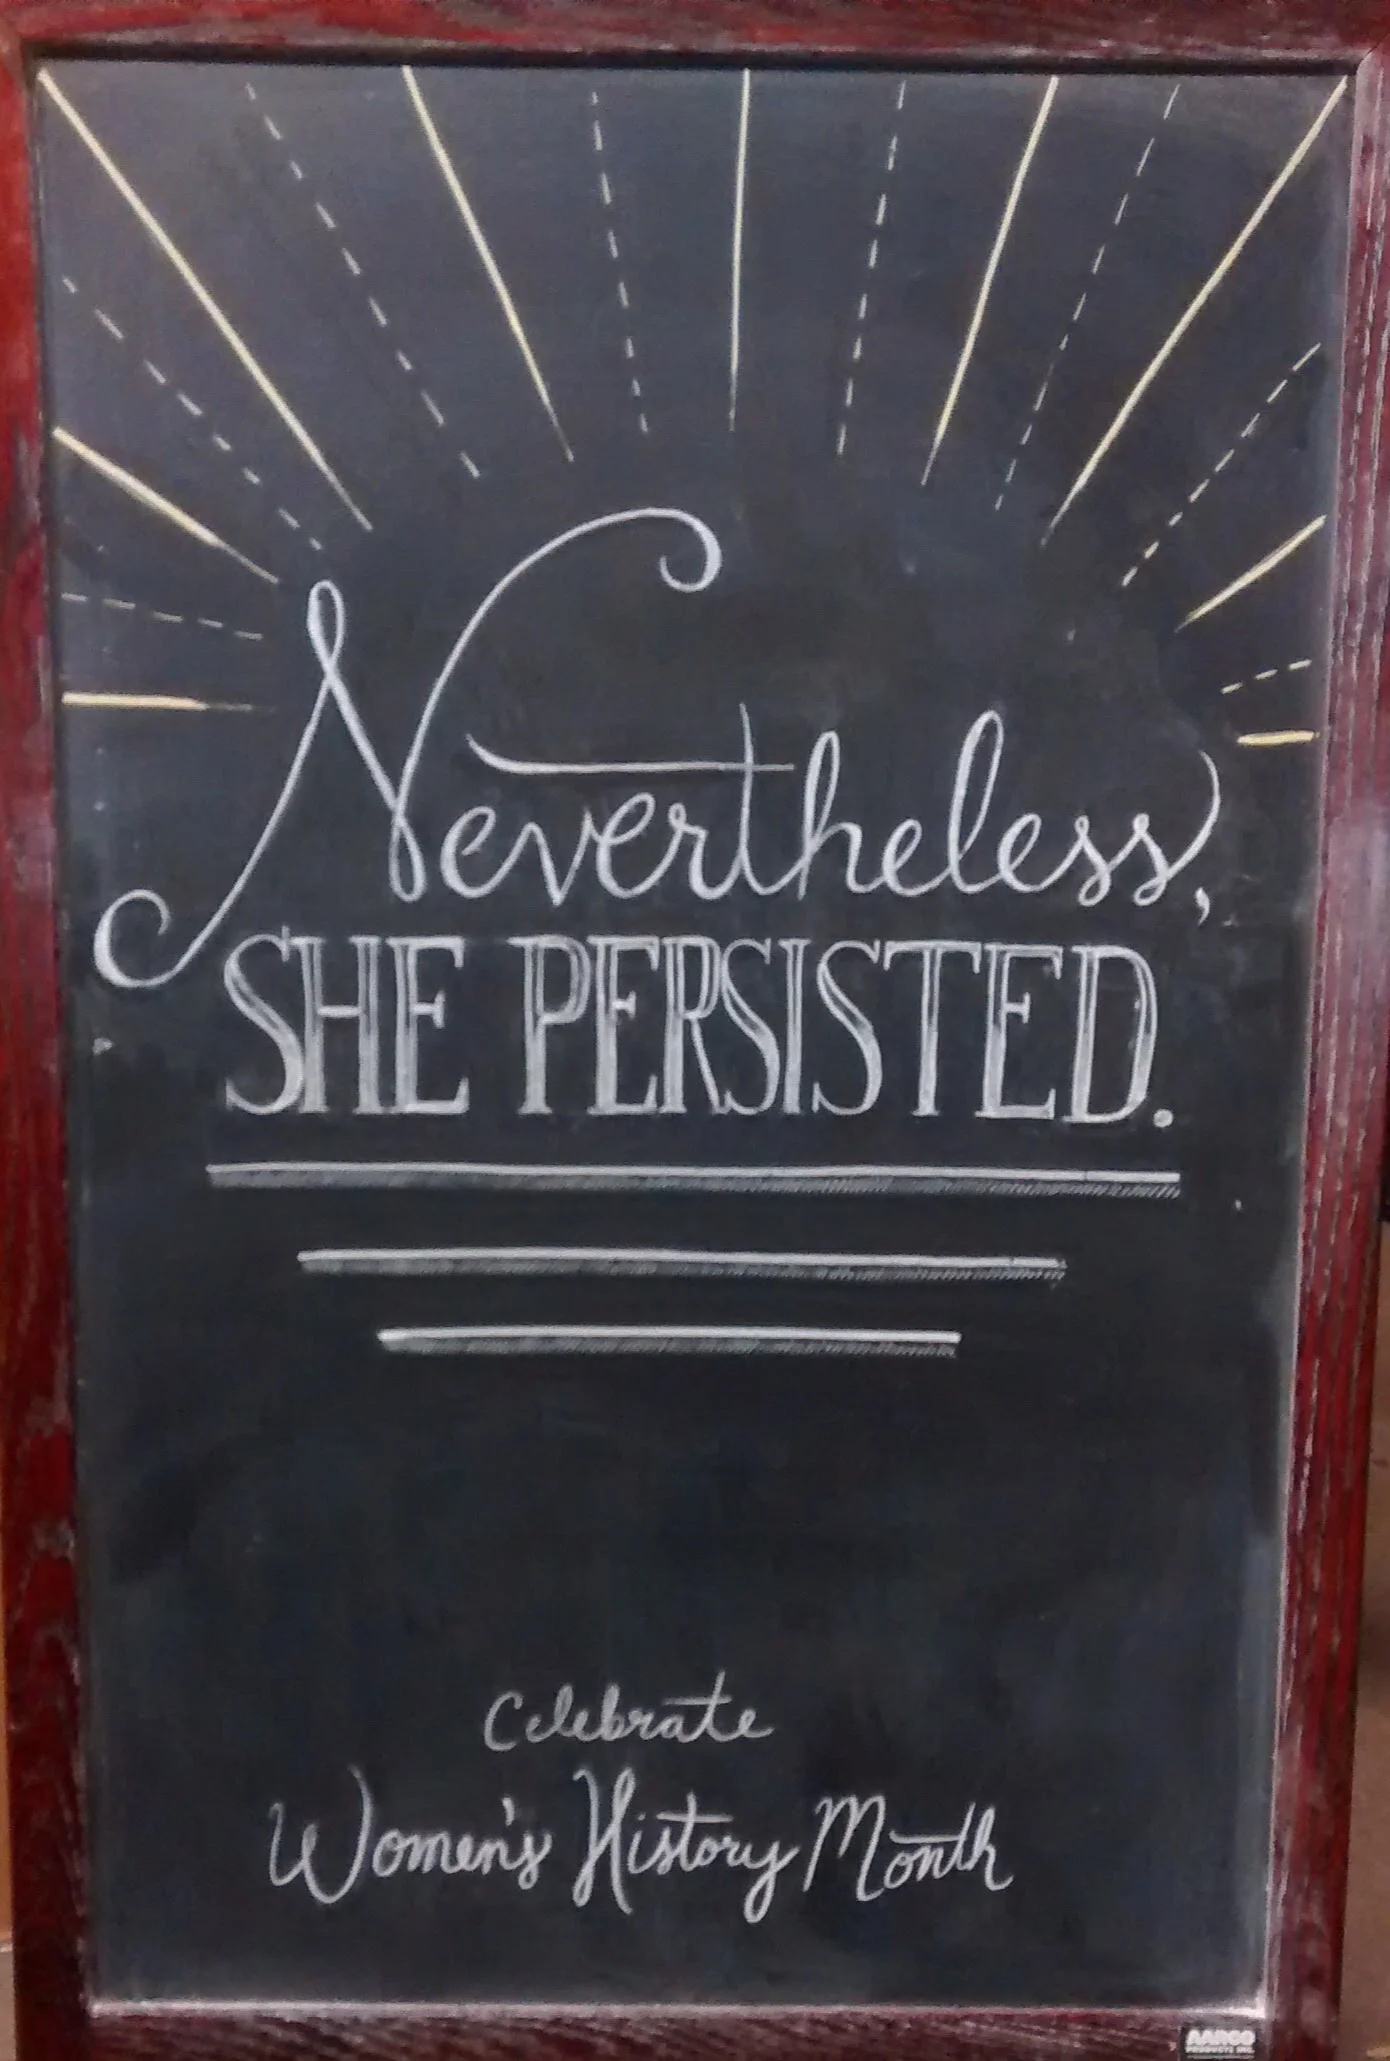 Nevertheless,
SHE PERSISTED.
Celebrate
Women's History Month
AARCO
PRODUCTS INC.